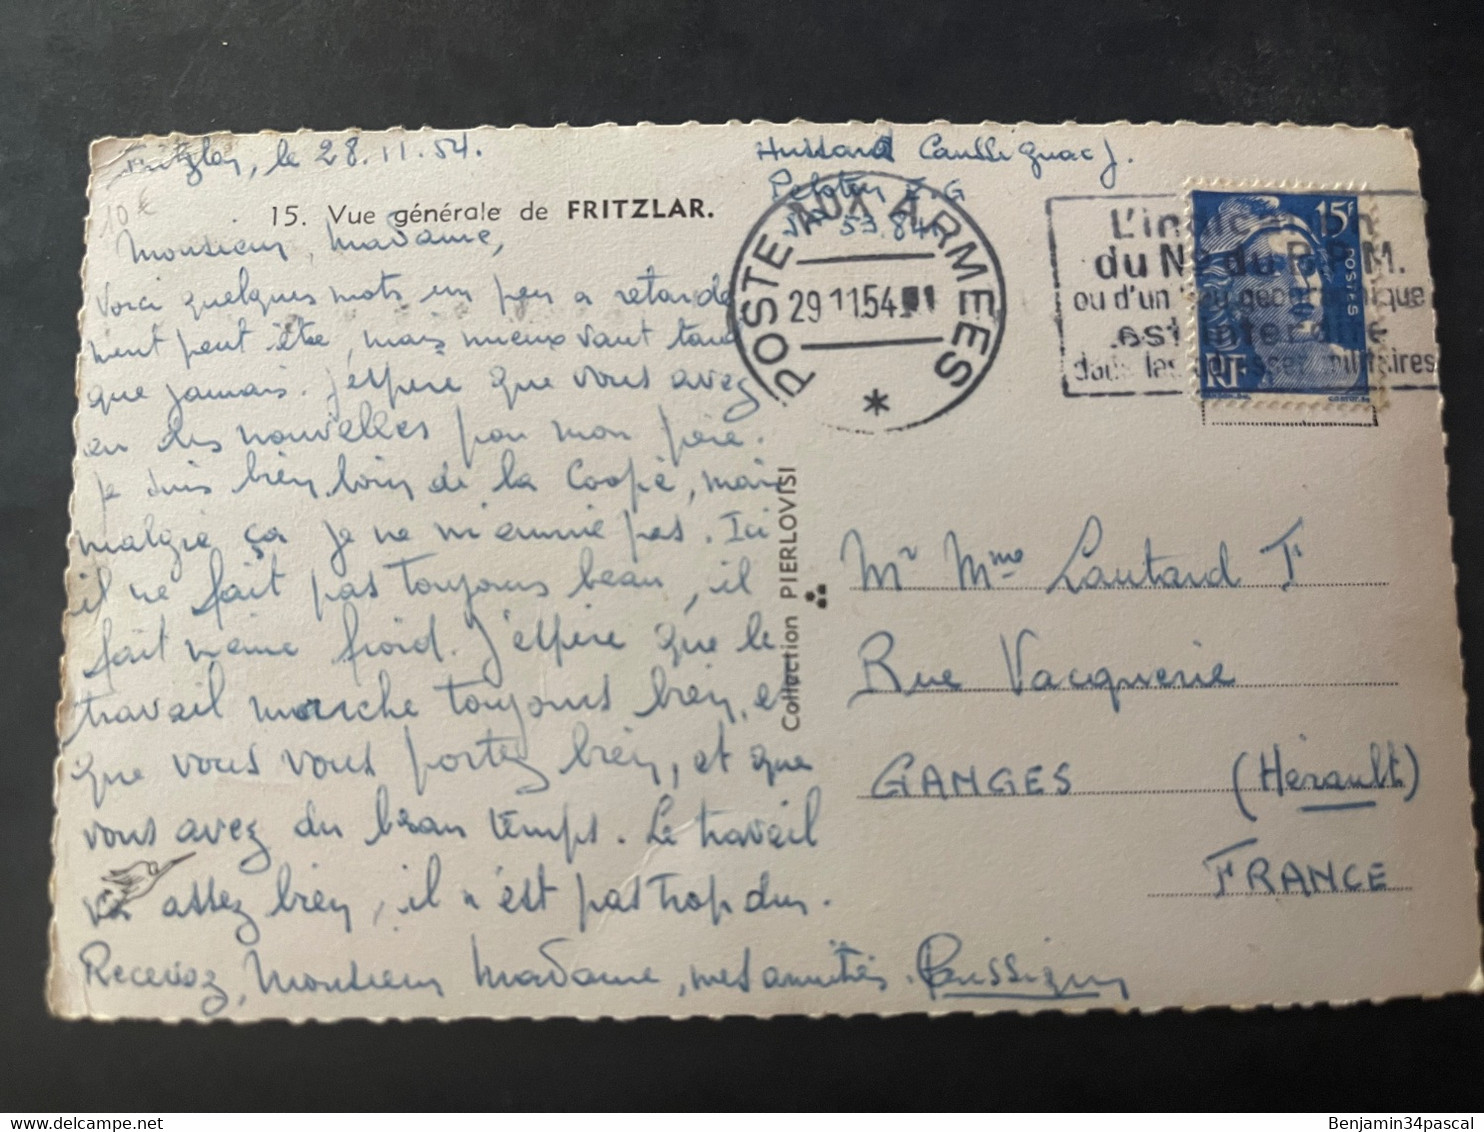 Fritzlar, le 28.11.54.
10€
15. Vue générale de FRITZLAR.
Monsieur, Madame,
Voici quelques mots un peu a retarde
ment peut être, mais mieux vaut tard
que jamais. J'espère que vous avez
eu des nouvelles pour mon père.
je suis bien loin de la Coopé, mais
malgré ça je ne m'ennuie pas. Ici
il ne fait pas toujours beau, il
fait même froid. J'espère que le
travail marche toujours bien, et
que vous vous portez bien, et que
vous avez du beau temps. Le travail
va assez bien, il n'est pas trop dur.
Recevez, Monsieur Madame, mes amitiés.
Hussard Caussignac J.
Peloton E.G
S.P 53.84
POSTE AUX ARMEES
29 11 54
*
L'indication
du No du B.P.M.
ou d'un lieu géographique
est interdite
dans les adresses militaires
15F
POSTES
RF
Collection PIERLOVISI
Mr Mme Lautard F
Rue Vacquerie
GANGES (Hérault)
FRANCE
Benjamin34pascal